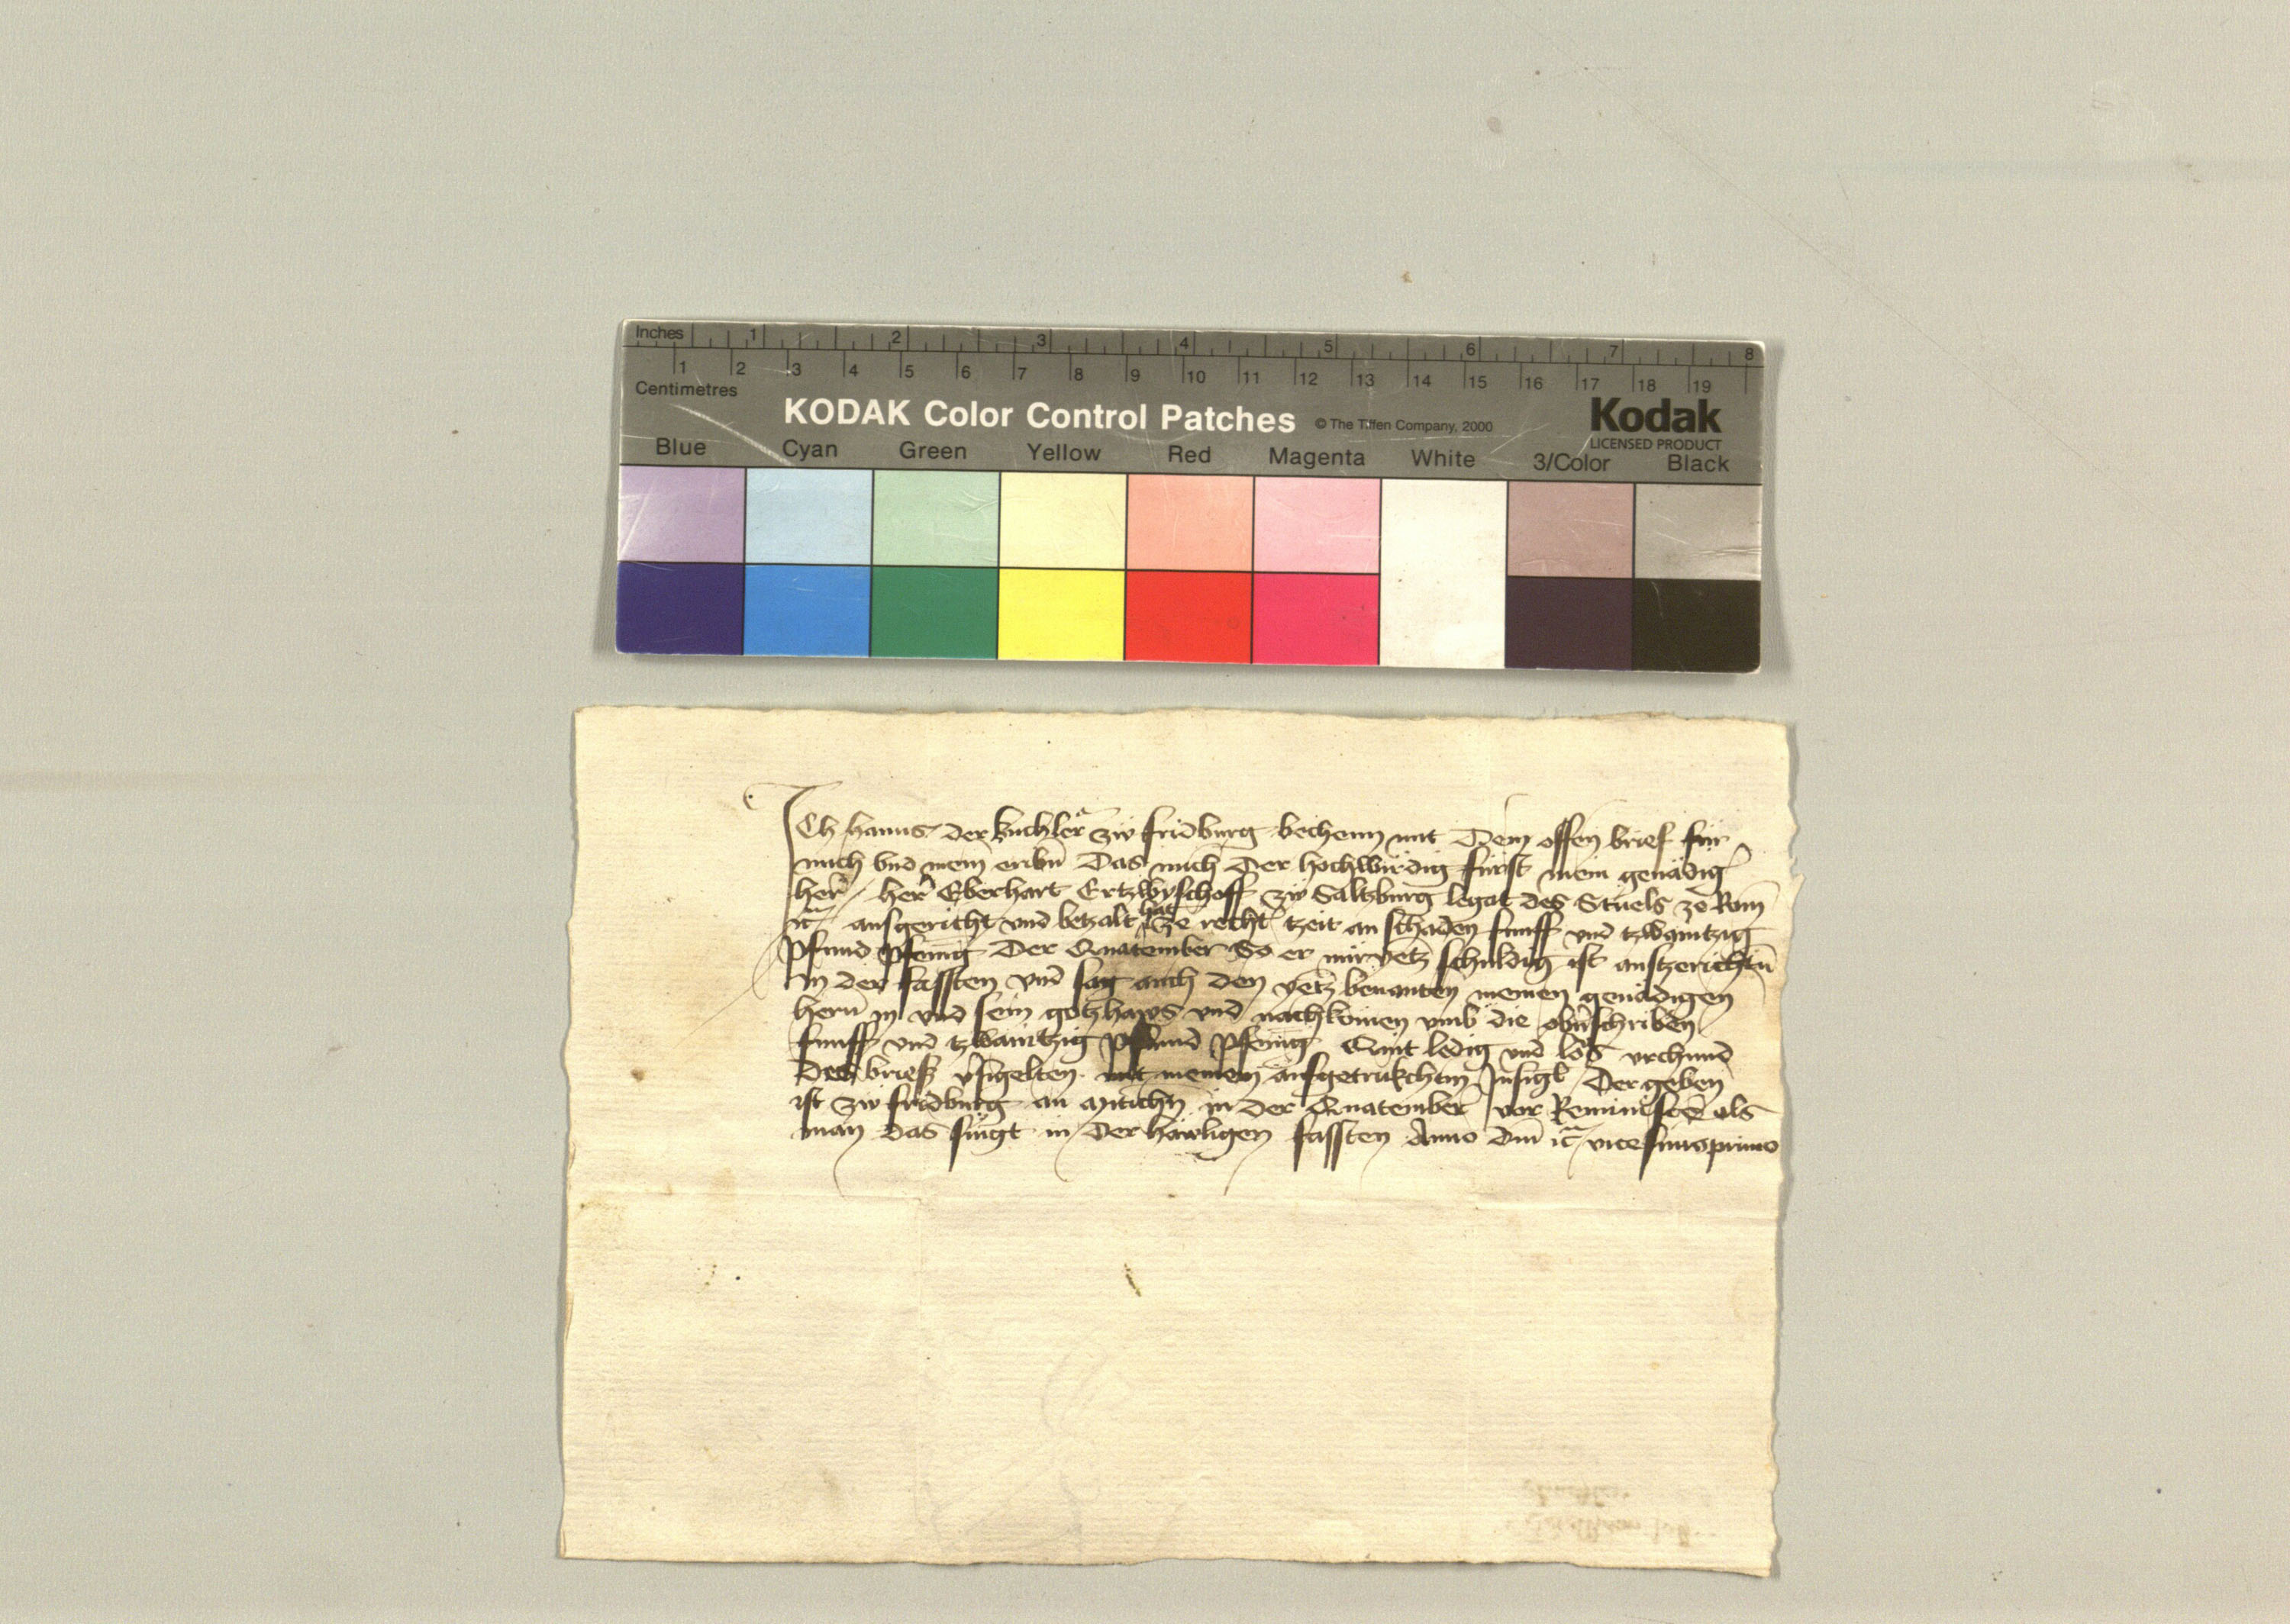 Inches 1 2 3 4 5 6 7 8
1 2 3 4 5 6 7 8 9 10 11 12 13 14 15 16 17 18 19
Centimetres
KODAK Color Control Patches © The Tiffen Company, 2000 Kodak
LICENSED PRODUCT
Blue Cyan Green Yellow Red Magenta White 3/Color Black
Ich hanns der kuchler zw fridburg bechenn mit dem offen brief fur
mich vnd mein eribn̄ Das mich Der hochwirdig fürst mein genädig
her̄ her̄ Eberhart Ertzbyschoff zw Saltzburg legat des Stuels ze Rom
ausgericht vnd betzalt hat ze recht̾ tzeit an schaden funff vnd tzwaintzig
Pfund Pfenīg Der Quatember So er mir yetz schuldig ist ausszerichtn̄
In der fassten vnd sag auch den yetz benanten meinen genädigen
hern̄ in vnd sein gotzhaws vnd nachkomen vmb die obn̄schriben
funff vnd tzwaintzig Pfund Pfenīg Quit ledig vnd los vrchund
Des briefs v̾sigelten mit meinem aufgetrukchtm Insigl Der geben
ist zw fridburg an Mitichn̄ in der Quatember vor Reminisc̄e als
man das singt in der hailigen fassten Anno dm̄ vicesimoprimo